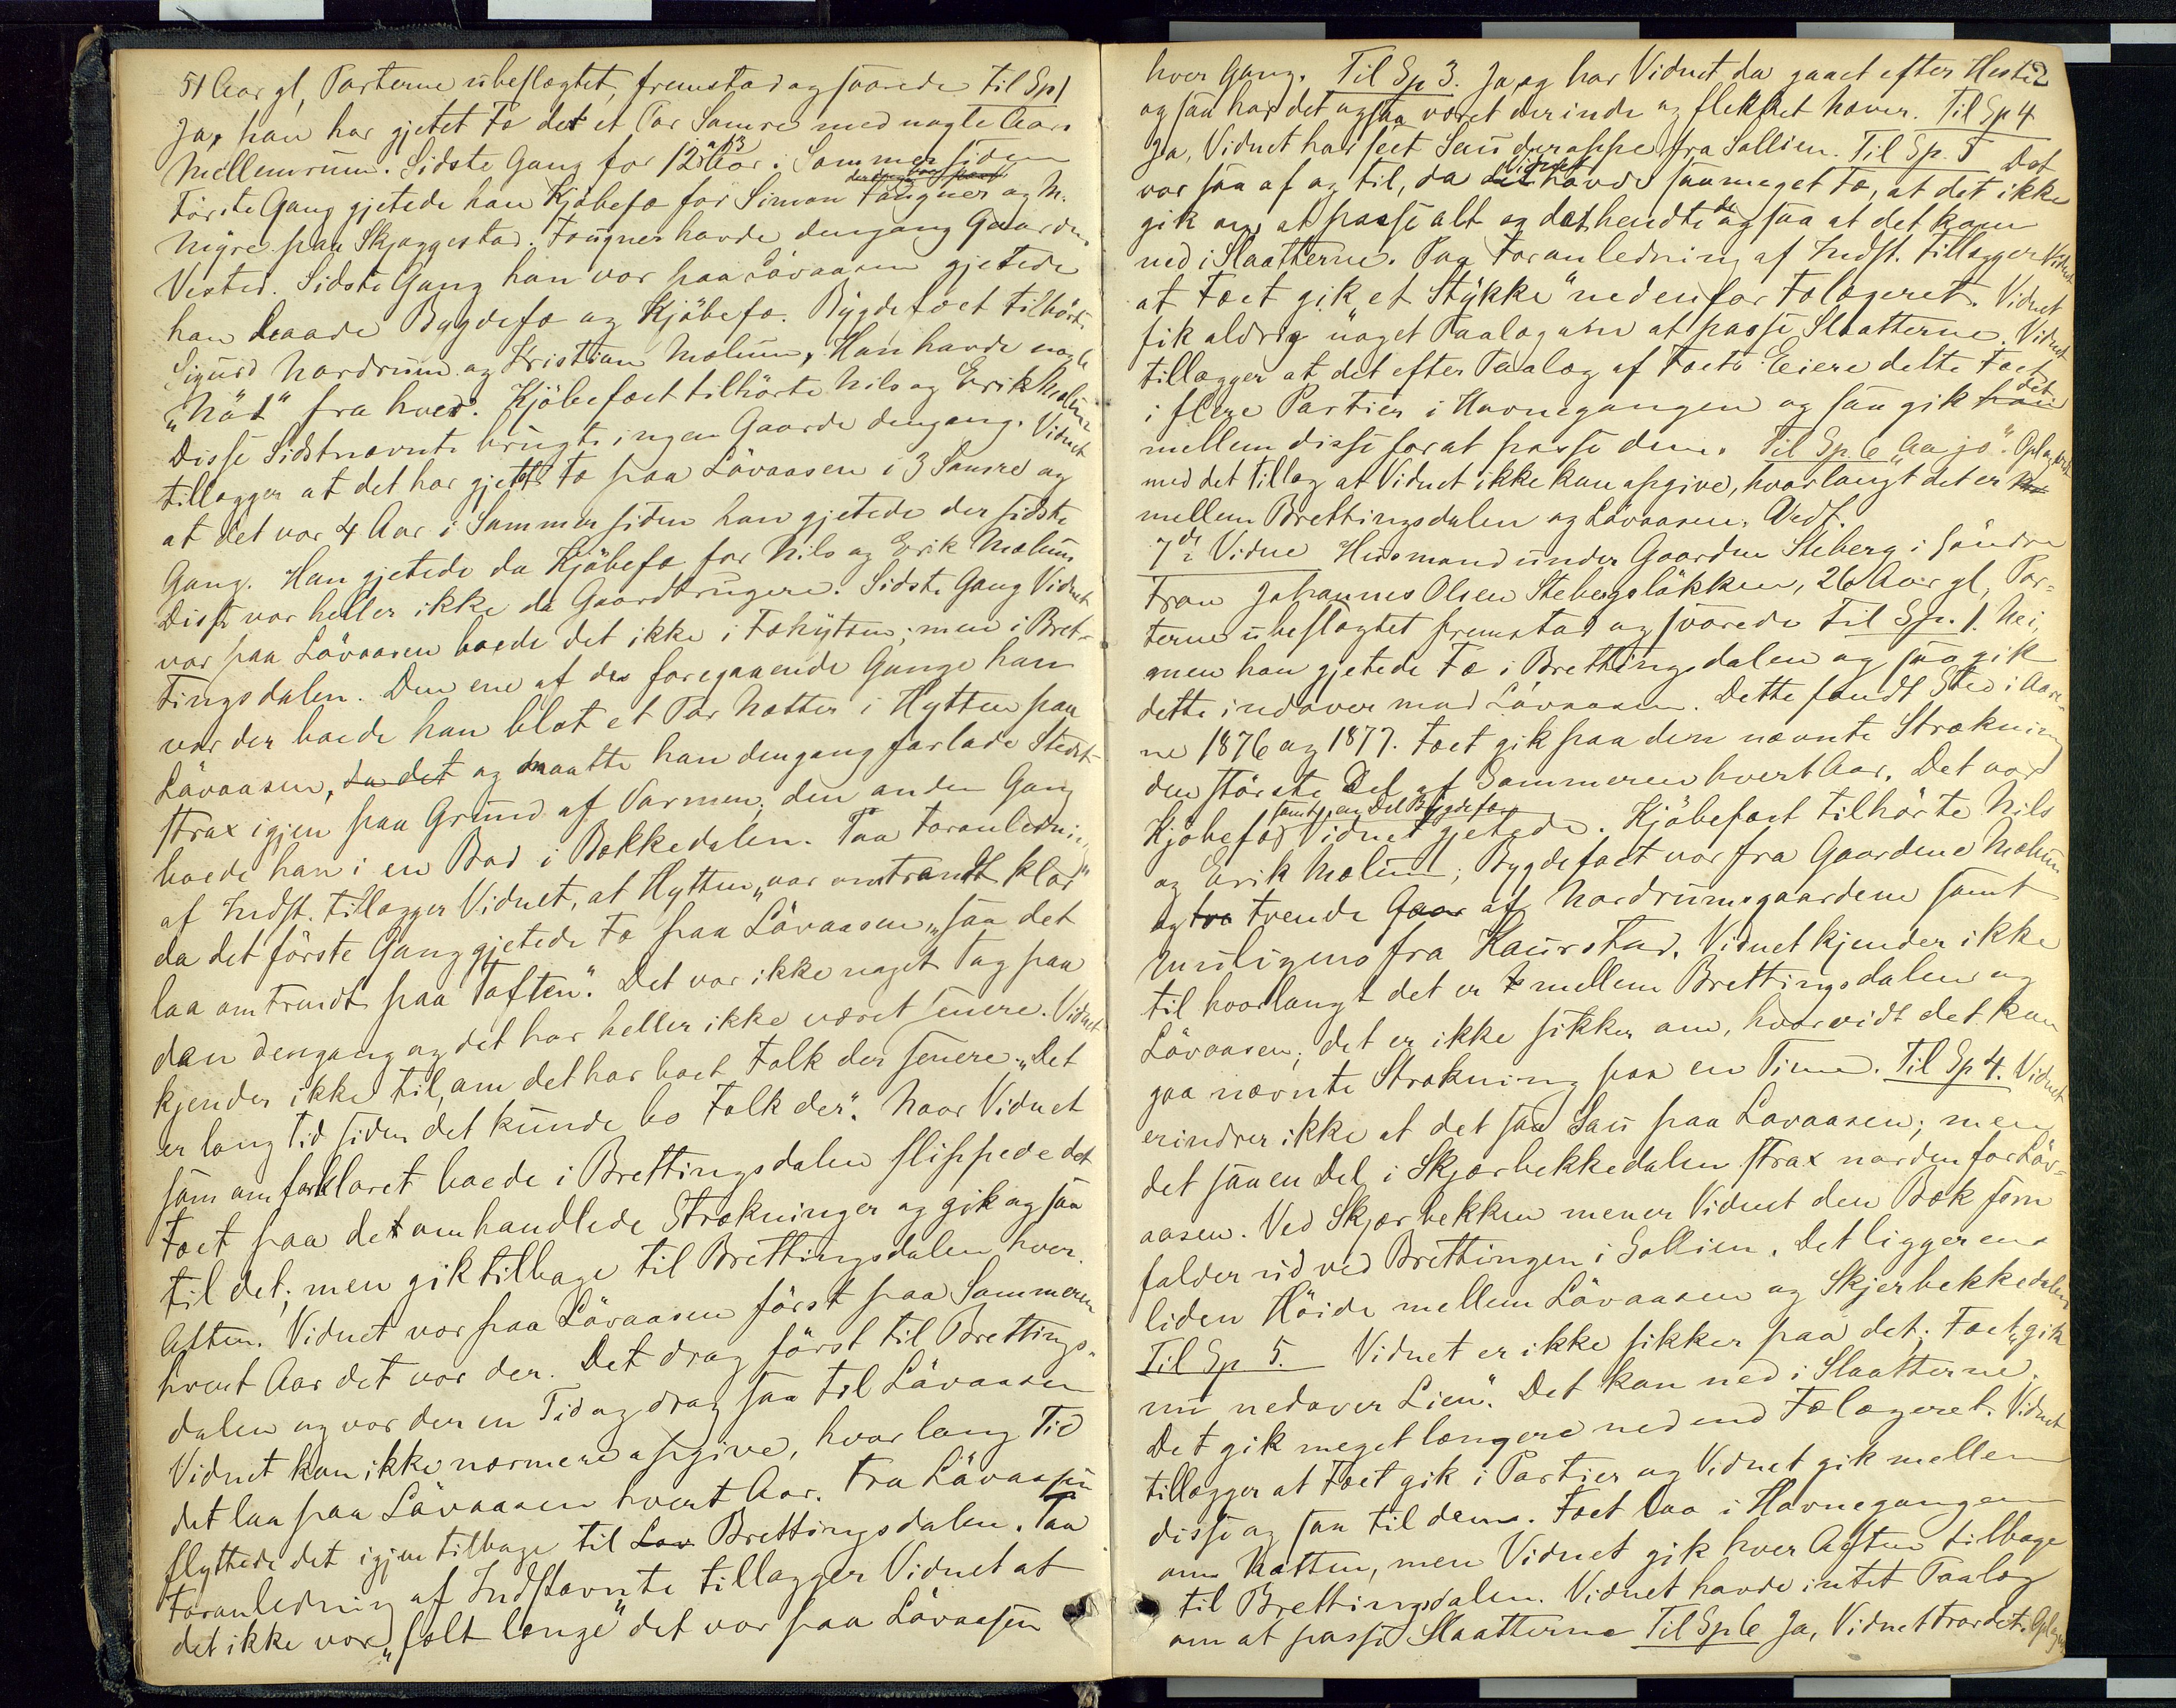 51 Aar gl, Parterne ubeslægtet, fremstod og svarede Til Sp 1
Ja, han har gjetet Fæ der et Par Somre med nogle Aars
Mellemrum. Sidste Gang for 12 à 13 Aar i Sommer siden
Første Gang gjetede han Kjøbefæ for Simon Fougner og N.
Nygre paa Skjæggestad. Fougner havde dengang Gaarden
Vested. Sidste Gang han var paa Løvaasen gjetede
han baade Bygdefæ og Kjøbefæ. Bygdefæet tilhørte
Sigurd Nordrum og Kristian Mælum, Han havde nogle
"Nöt" fra hver. Kjøbefæet tilhørte Nils og Erik Mælum
Disse Sidstnævnte brugte ingen Gaarde dengang. Vidnet
tillægger at det har gjetet Fæ paa Løvaasen i 3 Somre og
at det var 4 Aar i Sommer siden han gjetede der sidste
Gang. Han gjetede da Kjøbefæ for Nils og Erik Mælum
Disse var heller ikke da Gaardbrugere. Sidste Gang Vidnet
var paa Løvaasen boede det ikke i Fæhytten; men i Bret-
tingsdalen. Den ene af de foregaaende Gange han
var der boede han blot et Par Nætter i Hytten paa
Løvaasen, da det og maatte han dengang forlade Stedet
strax igjen paa Grund af Varmen; den anden Gang
boede han i en Bod i Bækkedalen. Paa Foranledning
af Indst. tillægger Vidnet, at Hytten "var omtrendt klar"
da det første Gang gjetede Fæ paa Løvaasen, "saa det
laa omtrendt paa Toften". Det var ikke noget Tag paa
den dengang og det har heller ikke været senere. Vidnet
kjender ikke til, om det har boet Folk der senere; "Det
er lang Tid siden det kunde bo Folk der". Naar Vidnet
som omforklaret boede i Brettingsdalen slippede det
Fæet paa det omhandlede Strækninger og gik og saa
til det; men gik tilbage til Brettingsdalen hver
Aften. Vidnet var paa Løvaasen først paa Sommeren
hvert Aar det var der. Det drog først til Brettings-
dalen og var der en Tid og drog saa til Løvaasen
Vidnet kan ikke nærmere opgive, hvor lang Tid
det laa paa Løvaasen hvert Aar. Fra Løvaasen
flyttede det igjen tilbage til Løv Brettingsdalen. Paa
Foranledning af Indstævnte tillægger Vidnet at
det ikke var "fælt længe" det var paa Løvaasen
hver Gang. Til Sp 3. Ja og har Vidnet da gaaet efter Heste
og saa har det ogsaa været derinde og flekket Never. Til Sp 4
Ja, Vidnet har seet Sau deroppe fra Sollien. Til Sp. 5 Det
var saa af og til, da det Vidnet havde saameget Fæ, at det ikke
gik an, at passe alt og det hendte da og saa at det kom
ned i Slaatterne. Paa Foranledning af Indst. tillægger Vidnet
at Fæet gik et Stykke "nedenfor Fælægeret. Vidnet
fik aldrig noget Paalæg om at passe Slaatterne. Vidnet
tillægger at det efter Paalæg af Fæets Eiere delte Fæet
i flere Partier i Havnegangen og saa gik han det
mellem disse for at passe dem. Til Sp. 6 "Aa jo". Oplæst
med det Tillæg at Vidnet ikke kan opgive, hvorlangt det er
mellem Brettingsdalen og Løvaasen. Vedt.
7de Vidne Husmand under Gaarden Steberg i Søndre
Fron Johannes Olsen Stebergsløkken, 26 Aar gl, Par-
terne ubeslægtet fremstod og svarede Til Sp. 1. Nei,
men han gjetede Fæ i Brettingsdalen og saa gik
dette indover mod Løvaasen. Dette fandt Sted i Aare-
ne 1876 og 1877. Fæet gik paa den nævnte Strækning
den største Del af Sommeren hvert Aar. Det var
Kjøbefæ samt en Del Bygdefæ Vidnet gjetede. Kjøbefæet tilhørte Nils
og Erik Mælum; Bygdefæet var fra Gaardene Mælum
og tvende Gaar af Nordrumsgaardene samt
muligens fra Haurstad. Vidnet kjender ikke
til hvorlangt det er mellem Brettingsdalen og
Løvaasen; det er ikke sikker om, hvorvidt det kan
gaa nævnte Strækning paa en Time. Til Sp 4. Vidnet
erindrer ikke at det saa Sau paa Løvaasen; men
det saa en Del i Skjærbekkedalen strax norden for Løv-
aasen. Ved Skjærbekken mener Vidnet den Bæk som
falder ud ved Brettingen i Sollien. Det ligger en
liden Høide mellem Løvaasen og Skjerbekkedalen
Til Sp 5. Vidnet er ikke sikker paa det; Fæet "gik
nu nedover Lien". Det kom ned i Slaatterne.
Det gik meget længere ned end Fælægeret. Vidnet
tillægger at Fæet gik i Partier og Vidnet gik mellem
disse og saa til dem. Fæet laa i Havnegangen
om Natten, men Vidnet gik hver Aften tilbage
til Brettingsdalen. Vidnet havde intet Paalæg
om at passe Slaatterne Til Sp 6 Ja, Vidnet tror det.